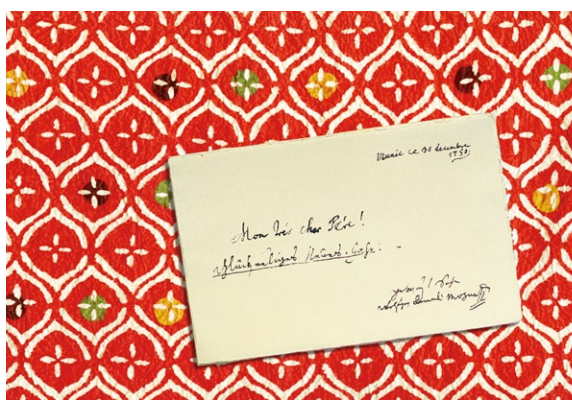 Munic ce 30 decembre
1780
Mon trés cher Pére!
Glückseeliges Neues=Jahr! -
Sohn
Wolfgang Amadé Mozart